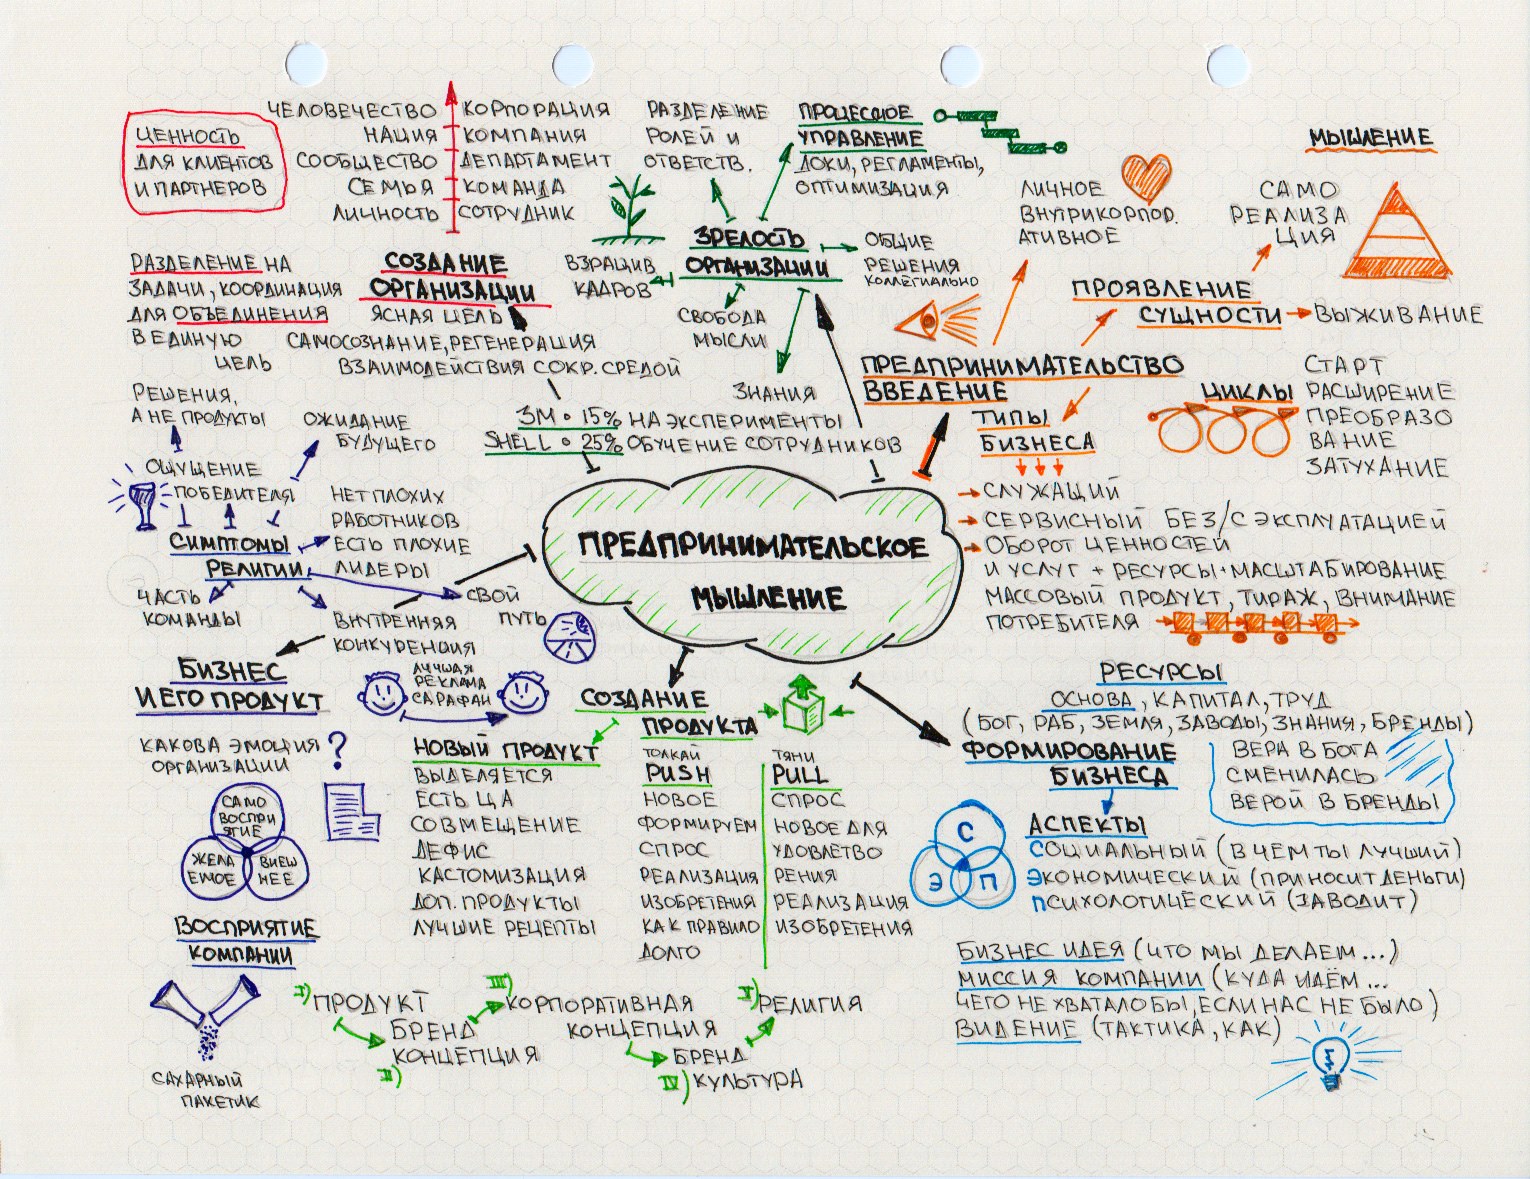 ЦЕННОСТЬ
ДЛЯ КЛИЕНТОВ
И ПАРТНЕРОВ
ЧЕЛОВЕЧЕСТВО
НАЦИЯ
СООБЩЕСТВО
СЕМЬЯ
ЛИЧНОСТЬ
КОРПОРАЦИЯ
КОМПАНИЯ
ДЕПАРТАМЕНТ
КОМАНДА
СОТРУДНИК
СОЗДАНИЕ
ОРГАНИЗАЦИИ
ЯСНАЯ ЦЕЛЬ
САМОСОЗНАНИЕ, РЕГЕНЕРАЦИЯ
ВЗАИМОДЕЙСТВИЯ С ОКР. СРЕДОЙ
РАЗДЕЛЕНИЕ НА
ЗАДАЧИ, КООРДИНАЦИЯ
ДЛЯ ОБЪЕДИНЕНИЯ
В ЕДИНУЮ
ЦЕЛЬ
РАЗДЕЛЕНИЕ
РОЛЕЙ И
ОТВЕТСТВ.
ПРОЦЕССНОЕ
УПРАВЛЕНИЕ
ДОКИ, РЕГЛАМЕНТЫ,
ОПТИМИЗАЦИЯ
ЗРЕЛОСТЬ
ОРГАНИЗАЦИИ
ВЗРАЩИВ
КАДРОВ
ОБЩИЕ
РЕШЕНИЯ
КОЛЛЕГИАЛЬНО
СВОБОДА
МЫСЛИ
ЗНАНИЯ
3М • 15% НА ЭКСПЕРИМЕНТЫ
SHELL • 25% ОБУЧЕНИЕ СОТРУДНИКОВ
МЫШЛЕНИЕ
ЛИЧНОЕ
ВНУТРИКОРПОР.
АТИВНОЕ
САМО
РЕАЛИЗА
ЦИЯ
ПРОЯВЛЕНИЕ
СУЩНОСТИ
ВЫЖИВАНИЕ
ПРЕДПРИНИМАТЕЛЬСТВО
ВВЕДЕНИЕ
ТИПЫ
БИЗНЕСА
ЦИКЛЫ
СТАРТ
РАСШИРЕНИЕ
ПРЕОБРАЗО
ВАНИЕ
ЗАТУХАНИЕ
СЛУЖАЩИЙ
СЕРВИСНЫЙ БЕЗ/С ЭКСПЛУАТАЦИЕЙ
ОБОРОТ ЦЕННОСТЕЙ
И УСЛУГ + РЕСУРСЫ + МАСШТАБИРОВАНИЕ
МАССОВЫЙ ПРОДУКТ, ТИРАЖ, ВНИМАНИЕ
ПОТРЕБИТЕЛЯ
РЕШЕНИЯ,
А НЕ ПРОДУКТЫ
ОЖИДАНИЕ
БУДУЩЕГО
ОЩУЩЕНИЕ
ПОБЕДИТЕЛЯ
СИМПТОМЫ
РЕЛИГИИ
НЕТ ПЛОХИХ
РАБОТНИКОВ
ЕСТЬ ПЛОХИЕ
ЛИДЕРЫ
ЧАСТЬ
КОМАНДЫ
ВНУТРЕННЯЯ
КОНКУРЕНЦИЯ
СВОЙ
ПУТЬ
ПРЕДПРИНИМАТЕЛЬСКОЕ
МЫШЛЕНИЕ
БИЗНЕС
И ЕГО ПРОДУКТ
ЛУЧШАЯ
РЕКЛАМА
САРАФАН
КАКОВА ЭМОЦИЯ
ОРГАНИЗАЦИИ
?
САМО
ВОСПРИ
ЯТИЕ
ЖЕЛА
ЕМОЕ
ВНЕШ
НЕЕ
ВОСПРИЯТИЕ
КОМПАНИИ
САХАРНЫЙ
ПАКЕТИК
СОЗДАНИЕ
ПРОДУКТА
НОВЫЙ ПРОДУКТ
ВЫДЕЛЯЕТСЯ
ЕСТЬ ЦА
СОВМЕЩЕНИЕ
ДЕФИС
КАСТОМИЗАЦИЯ
ДОП. ПРОДУКТЫ
ЛУЧШИЕ РЕЦЕПТЫ
ТОЛКАЙ
PUSH
НОВОЕ
ФОРМИРУЕМ
СПРОС
РЕАЛИЗАЦИЯ
ИЗОБРЕТЕНИЯ
КАК ПРАВИЛО
ДОЛГО
ТЯНИ
PULL
СПРОС
НОВОЕ ДЛЯ
УДОВЛЕТВО
РЕНИЯ
РЕАЛИЗАЦИЯ
ИЗОБРЕТЕНИЯ
I) ПРОДУКТ
БРЕНД
КОНЦЕПЦИЯ
II)
III)
КОРПОРАТИВНАЯ
КОНЦЕПЦИЯ
БРЕНД
IV) КУЛЬТУРА
V) РЕЛИГИЯ
РЕСУРСЫ
ОСНОВА, КАПИТАЛ, ТРУД
(БОГ, РАБ, ЗЕМЛЯ, ЗАВОДЫ, ЗНАНИЯ, БРЕНДЫ)
ФОРМИРОВАНИЕ
БИЗНЕСА
ВЕРА В БОГА
СМЕНИЛАСЬ
ВЕРОЙ В БРЕНДЫ
С
Э
П
АСПЕКТЫ
СОЦИАЛЬНЫЙ (В ЧЕМ ТЫ ЛУЧШИЙ)
ЭКОНОМИЧЕСКИЙ (ПРИНОСИТ ДЕНЬГИ)
ПСИХОЛОГИЧЕСКИЙ (ЗАВОДИТ)
БИЗНЕС ИДЕЯ (ЧТО МЫ ДЕЛАЕМ...)
МИССИЯ КОМПАНИИ (КУДА ИДЁМ...
ЧЕГО НЕ ХВАТАЛО БЫ, ЕСЛИ НАС НЕ БЫЛО)
ВИДЕНИЕ (ТАКТИКА, КАК)